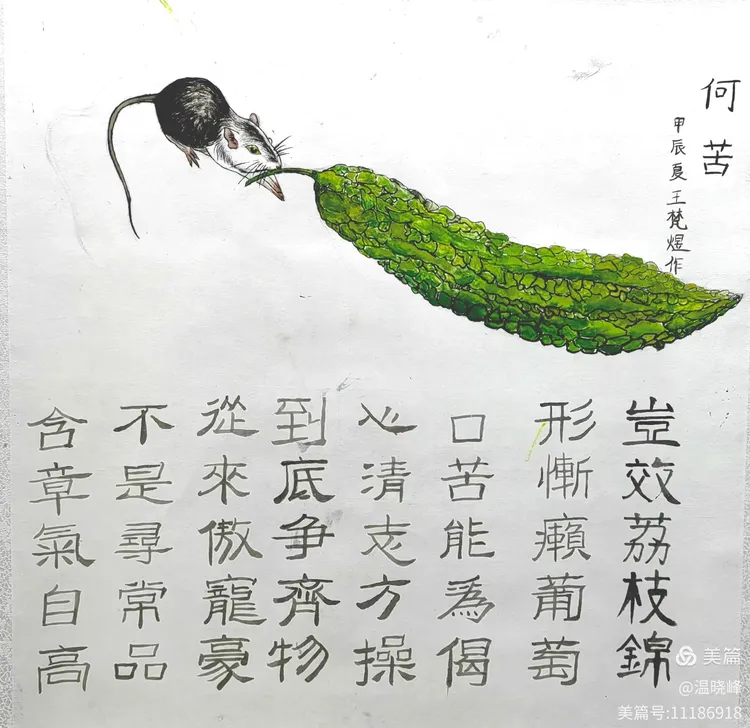 何苦
甲辰夏王梵煜作
豈效荔枝錦
形慚癩葡萄
口苦能爲偈
心清志方操
到底争齊物
從來傲寵豪
不是尋常品
含章氣自高
美篇
@温晓峰
美篇号:11186918